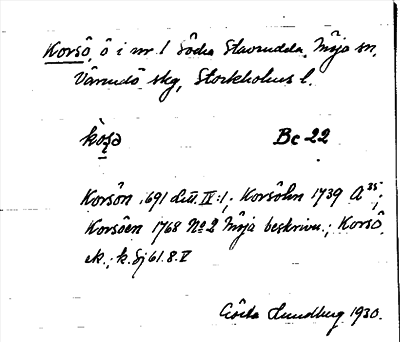 Korsö, ö i nr 1 Södra Stavsudda, Möja sn,
Värmdö skg, Stockholms l.
Bc 22
Korsön 1691 Litt. IV:1; Korsöhn 1739 A 35;
Korsöen 1768 No 2 Möja beskrivn.; Korsö
ek. k. Sj 61.8.V
Gösta Lundberg 1930.